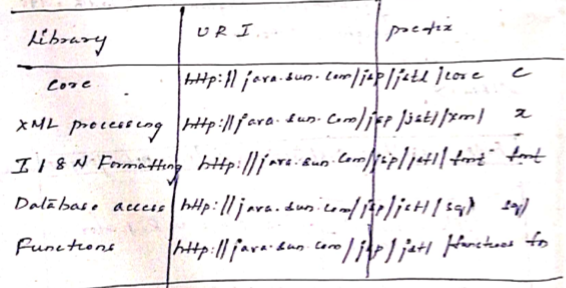 Library URI prefix
Core http://java.sun.com/jsp/jstl/core c
XML processing http://java.sun.com/jsp/jstl/xml x
I18N Formatting http://java.sun.com/jsp/jstl/fmt fmt
Database access http://java.sun.com/jsp/jstl/sql sql
Functions http://java.sun.com/jsp/jstl/functions fn